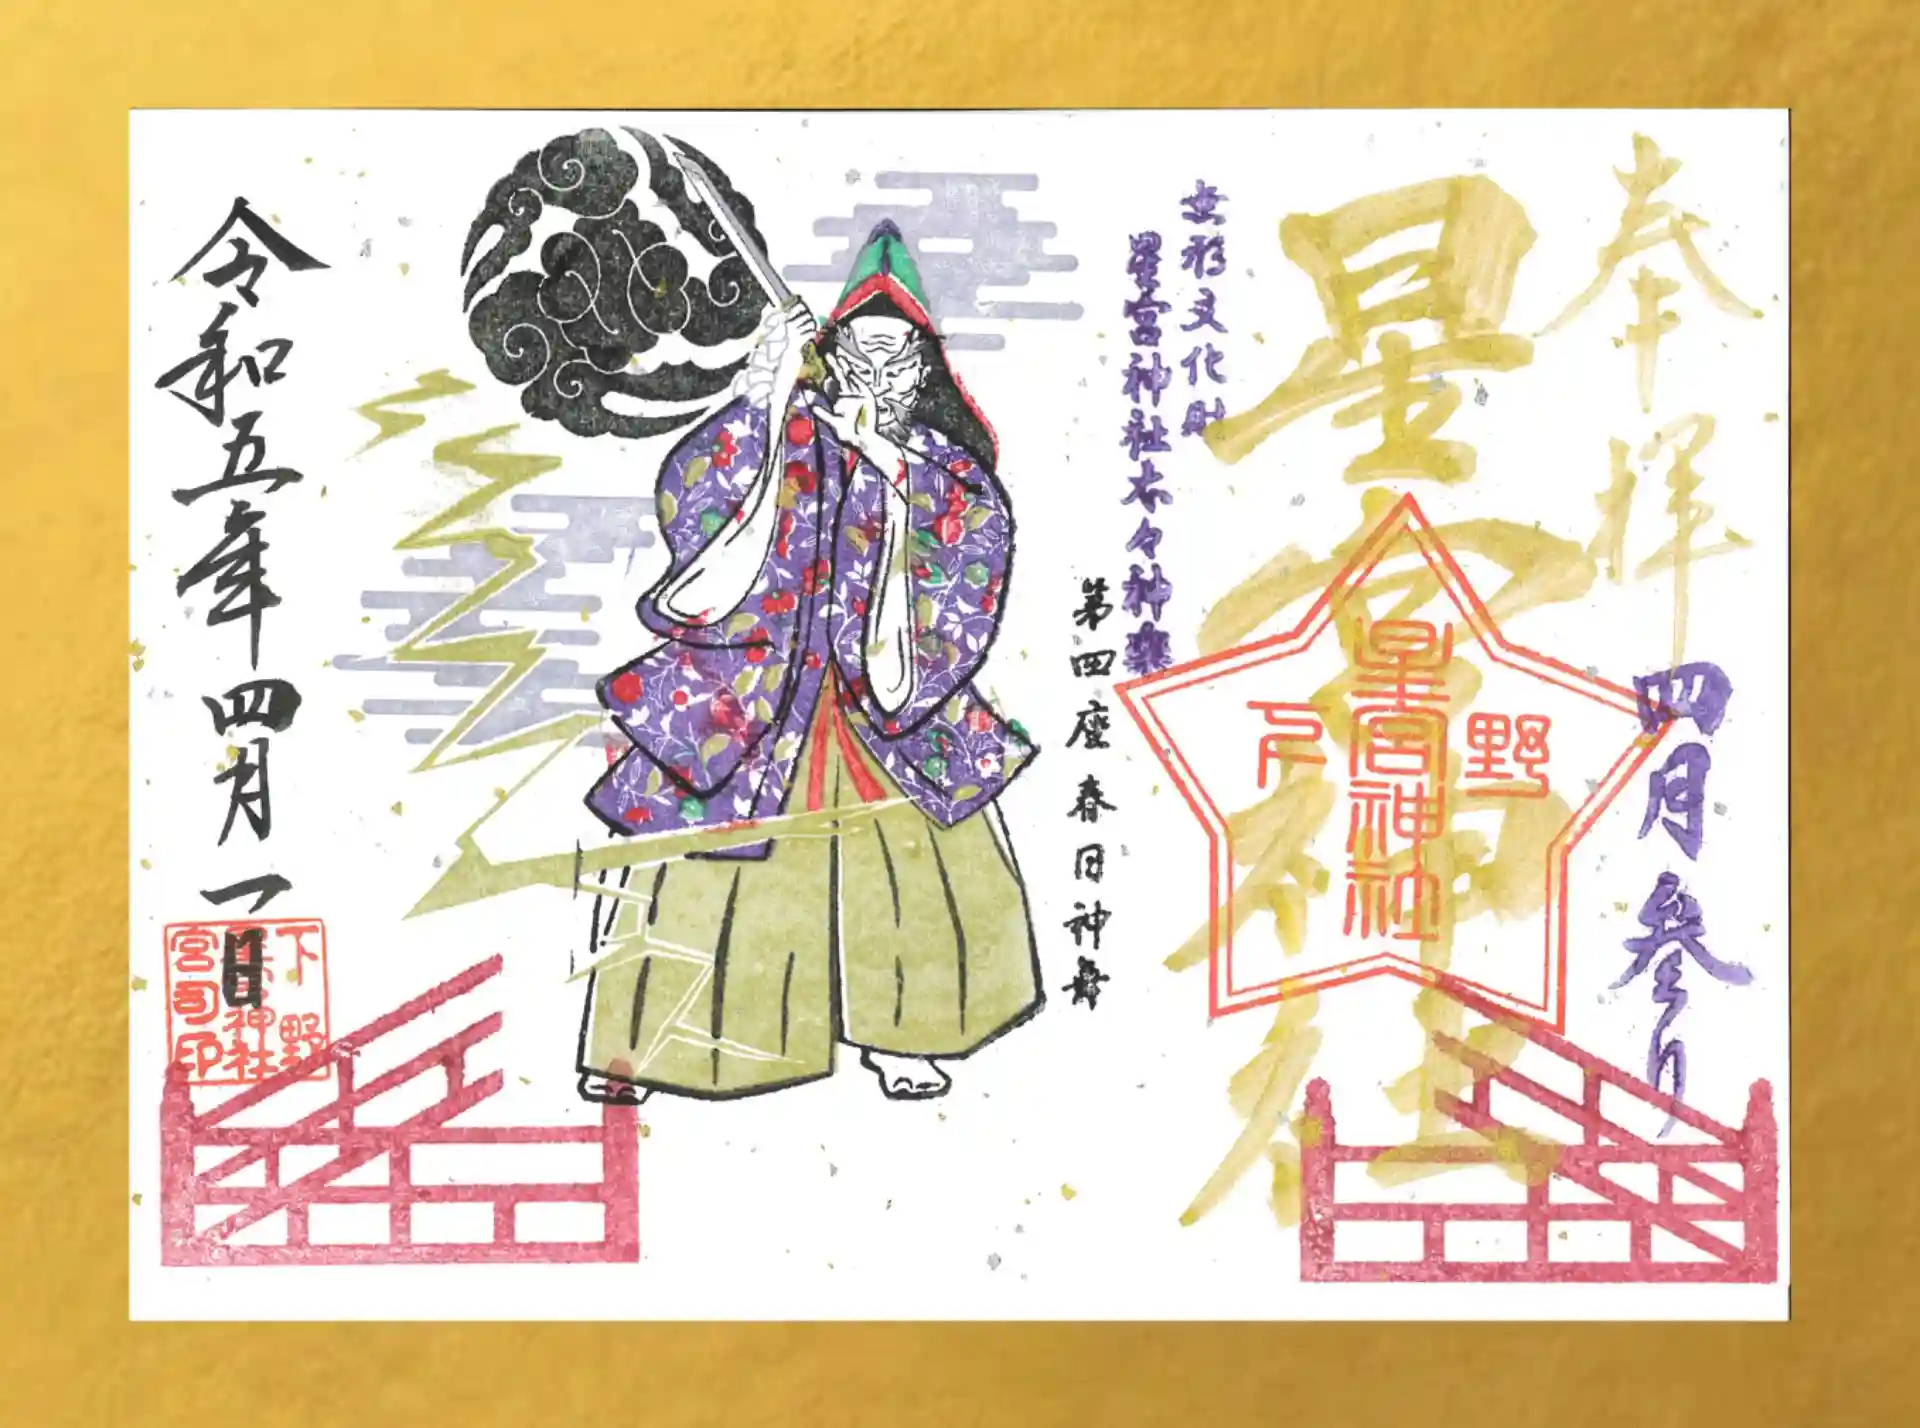 奉拝
四月参り
星宮神社
野
星宮神社
下
無形文化財
星宮神社太々神楽
第四座春日神舞
令和五年四月一日
下野
星宮神社
宮司印